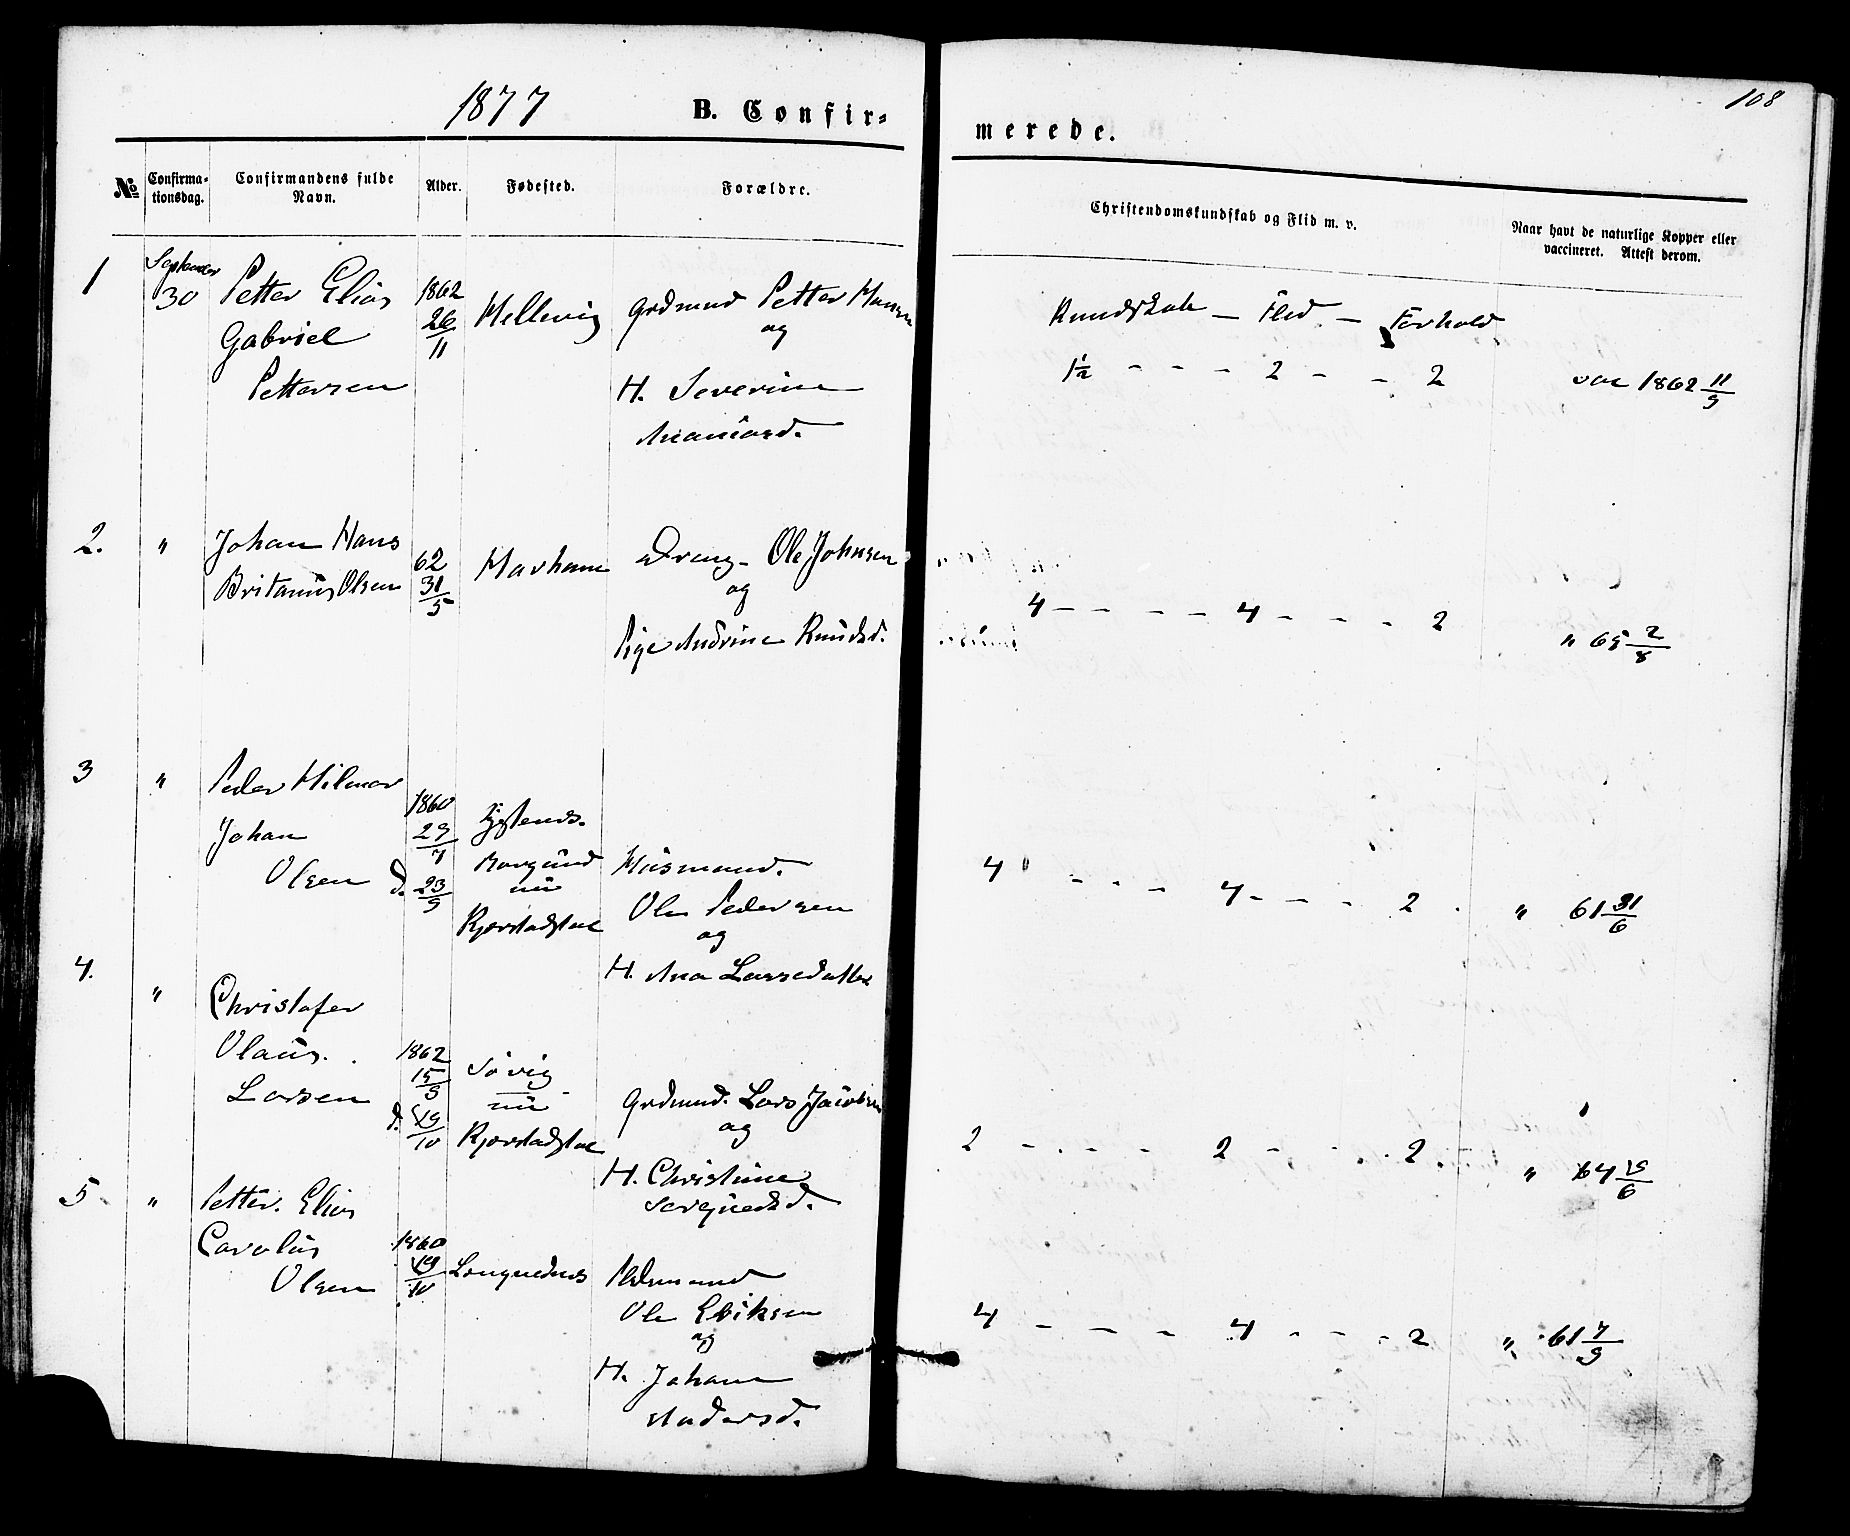 1877
B. Confir-
merede.
108
№
Confirma-
tionsdag.
Confirmandens fulde
Navn.
Alder.
Fødested.
Forældre.
Christendomskundskab og Flid m. v.
Naar havt de naturlige Kopper eller
vaccineret. Attest derom.
1
September
30
Petter Elias
Gabriel
Pettersen
1862
26/11
Hellevig
Grdmand Petter Hansen
og
H. Severine
Ananiasd.
Kundskab – Flid – Forhold
1½ – – – 2 – – 2
vac 1862 11/9
2.
"
Johan Hans
Britanius Olsen
62
31/5
Havham
Dreng – Ole Johnsen
og
Pige Andrine Knudsd.
4 – – – – 4 – – – 2
" 65 2/8
3
"
Peder Hilmar
Johan
Olsen
1860
29/7
d. 23/9
Borgund
nu
Kjerstadstad
Husmand.
Ole Pedersen
og
H. Ana Larsedatter
4 – – – 4 – – – 2
" 61 31/6
4.
"
Christofer
Olaus.
Larsen
1862
15/9
d. 19/10
Søvig
nu
Kjerstadstad
Grdmand. Lars Jacobsen
og
H. Christine
2 – – – – 2 – – 2
" 64
5
"
Petter. Elias
Carolus
Olsen
1860
19/10
Longvednes
Pldsmand
Ole Eriksen
og
H. Johane
Andersd.
4 – – – 4 – – – 2
" 61 7/9